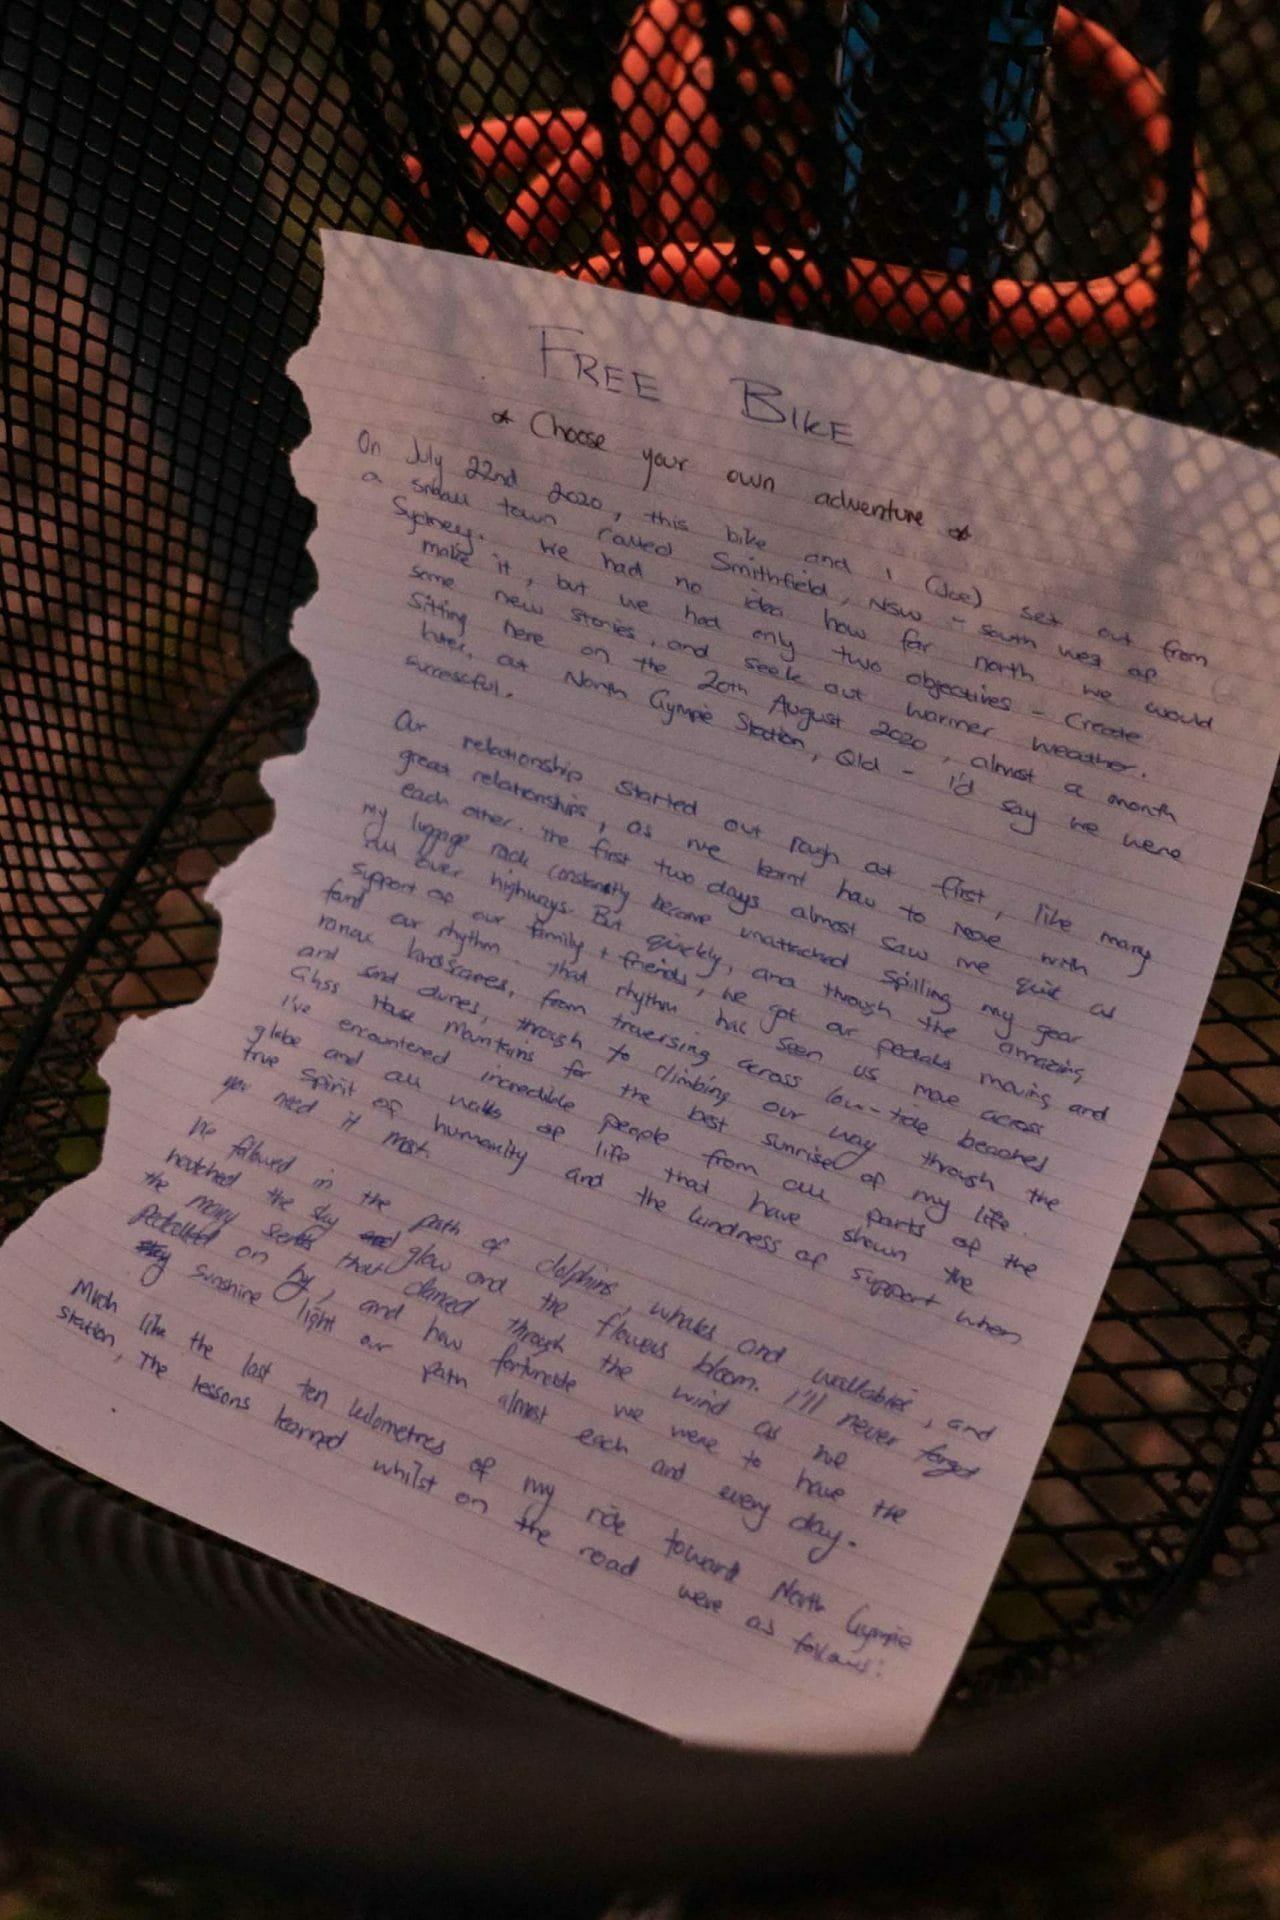 FREE BIKE
* Choose your own adventure *
On July 22nd 2020, this bike and I (Joe) set out from
a small town called Smithfield, NSW - south west of
Sydney. We had no idea how far north we would
make it, but we had only two objectives - Create
some new stories, and seek out warmer weather.
Sitting here on the 20th August 2020, almost a month
later, at North Gympie Station, Qld - I'd say we were
successful.
Our relationship started out rough at first, like many
great relationships, as we learnt how to move with
each other. The first two days almost saw me quit as
my luggage rack constantly became unattached spilling my gear
all over highways. But quickly, and through the amazing
support of our family + friends, we got our pedals moving and
found our rhythm. That rhythm has seen us move across
landscapes, from traversing across low-tide beaches
and sand dunes, through to climbing our way through the
Glass House Mountains for the best sunrise of my life.
I've encountered incredible people from all parts of the
globe and all walks of life that have shown the
true spirit of humanity and the kindness of support when
you need it most.
We followed in the path of dolphins, whales and wallabies, and
watched the sky glow and the flowers bloom. I'll never forget
the many that danced through the wind as we
pedalled on by, and how fortunate we were to have the
sunshine light our path almost each and every day.
Much like the last ten kilometres of my ride toward North Gympie
station, The lessons learned whilst on the road were as follows: